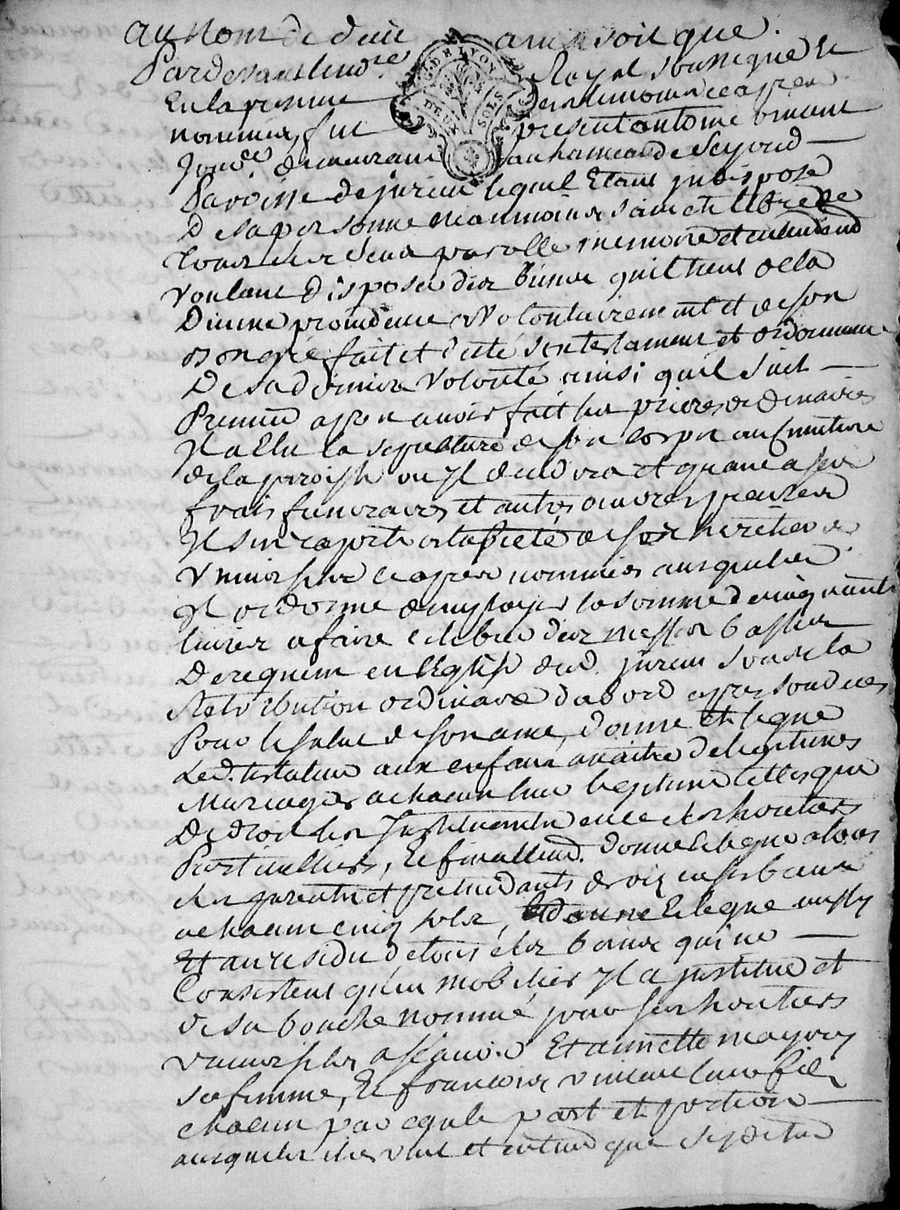 au nom de dieu amen soit que
Pardevant le no.re Royal soussigné et
En la presence des temoins cy apres
nommés, fut present antoine vincent
demeurant au hameau de
Paroisse de jurieu lequel Etant indisposé
De sa personne neanmoins sain et libre de
tous ses sens parolle memoire et entendement
voulant Disposer des biens quil tient de la
Divine providence, volontairement et de son
bon gré fait et dicté son testament et ordonnance
De sa derniere volonté ainsi quil suit
Premier apres avoir fait les prieres ordinaires
Il a élu la sepulture de son corps au cimetiere
de la paroisse ou Il decedera et quant a ses
frais funeraires et autres oeuvres pieuses
Il s'en raporte a la pieté de ses heritiers
universels cy apres nommés ausquels
Il ordonne d'employer la somme de cinquante
livres a faire celebrer des messes basses
De requiem en l'Eglise dud. jurieu sous la
Retribution ordinaire d'abord apres son deces
Pour le salut de son ame, donne et legue
Led. testateur aux enfans a naitre de legitimes
Mariages a chacun leur legitime telle que
De droit les Instituant en ce ses heritiers
Particulliers, et finallem.t donne et legue a tous
ses parents et pretendants droits en ses biens
a chacun cinq sols,
Et au residu de tous ses biens qui ne
Consistent qu'en mobilier Il a institué et
de sa bouche nommé pour ses heritiers
universels a scavoir Etiennette
sa femme, et francois vincent son fils
chacun par egale part et portion
ausquels il veut et entend que